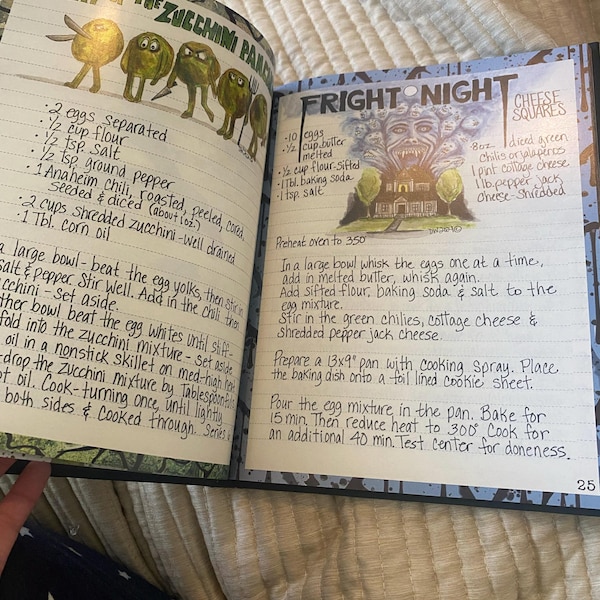 THE ZUCCHINI
• 2 eggs separated
• 1/2 cup flour
• 1/2 tsp. salt
• 1/2 tsp. ground pepper
• 1 Anaheim chili, roasted, peeled, cored,
seeded & diced (about 1oz.)
• 2 cups shredded zucchini - well drained
• 1 Tbl. corn oil
a large bowl - beat the egg yolks, then stir in
salt & pepper. Stir well. Add in the chili then
- Set aside.
other bowl beat the egg whites until stiff -
fold into the zucchini mixture - Set aside
oil in a nonstick skillet on med-high heat
drop the zucchini mixture by Tablespoonfuls
oil. Cook - turning once, until lightly
both sides & cooked through.
FRIGHT NIGHT
CHEESE
SQUARES
• 10 eggs
• 1/2 cup butter
melted
• 1/2 cup flour - sifted
• 1 Tbl. baking soda
• 1 tsp. salt
• 8oz. diced green
chilis or jalapeños
1 pint cottage cheese
1 lb. pepper jack
cheese - shredded
Preheat oven to 350°
In a large bowl whisk the eggs one at a time,
add in melted butter, whisk again.
Add sifted flour, baking soda & salt to the
egg mixture.
Stir in the green chilies, cottage cheese &
shredded pepper jack cheese.
Prepare a 13x9" pan with cooking spray. Place
the baking dish onto a foil lined cookie sheet.
Pour the egg mixture in the pan. Bake for
15 min. Then reduce heat to 300° Cook for
an additional 40 min. Test center for doneness.
25